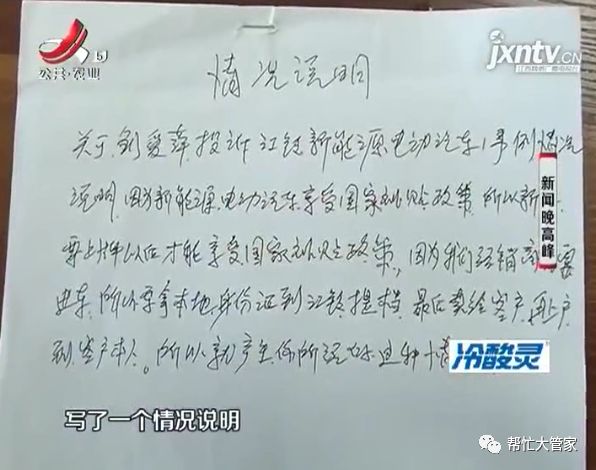 5
公共·农业
jxntv.CN
情况说明
关于刘爱萍投诉江铃新能源电动汽车事例情况
说明，因为新能源电动汽车享受国家补贴政策，所以新
要上牌以后才能享受国家补贴政策，因为我们经销商 要
进车，所以要拿本地身份证到江铃提模，最后卖给客户，再上户
到客户本人。所以就产生你所说的这种情
新闻晚高峰
冷酸灵
写了一个情况说明
帮忙大管家